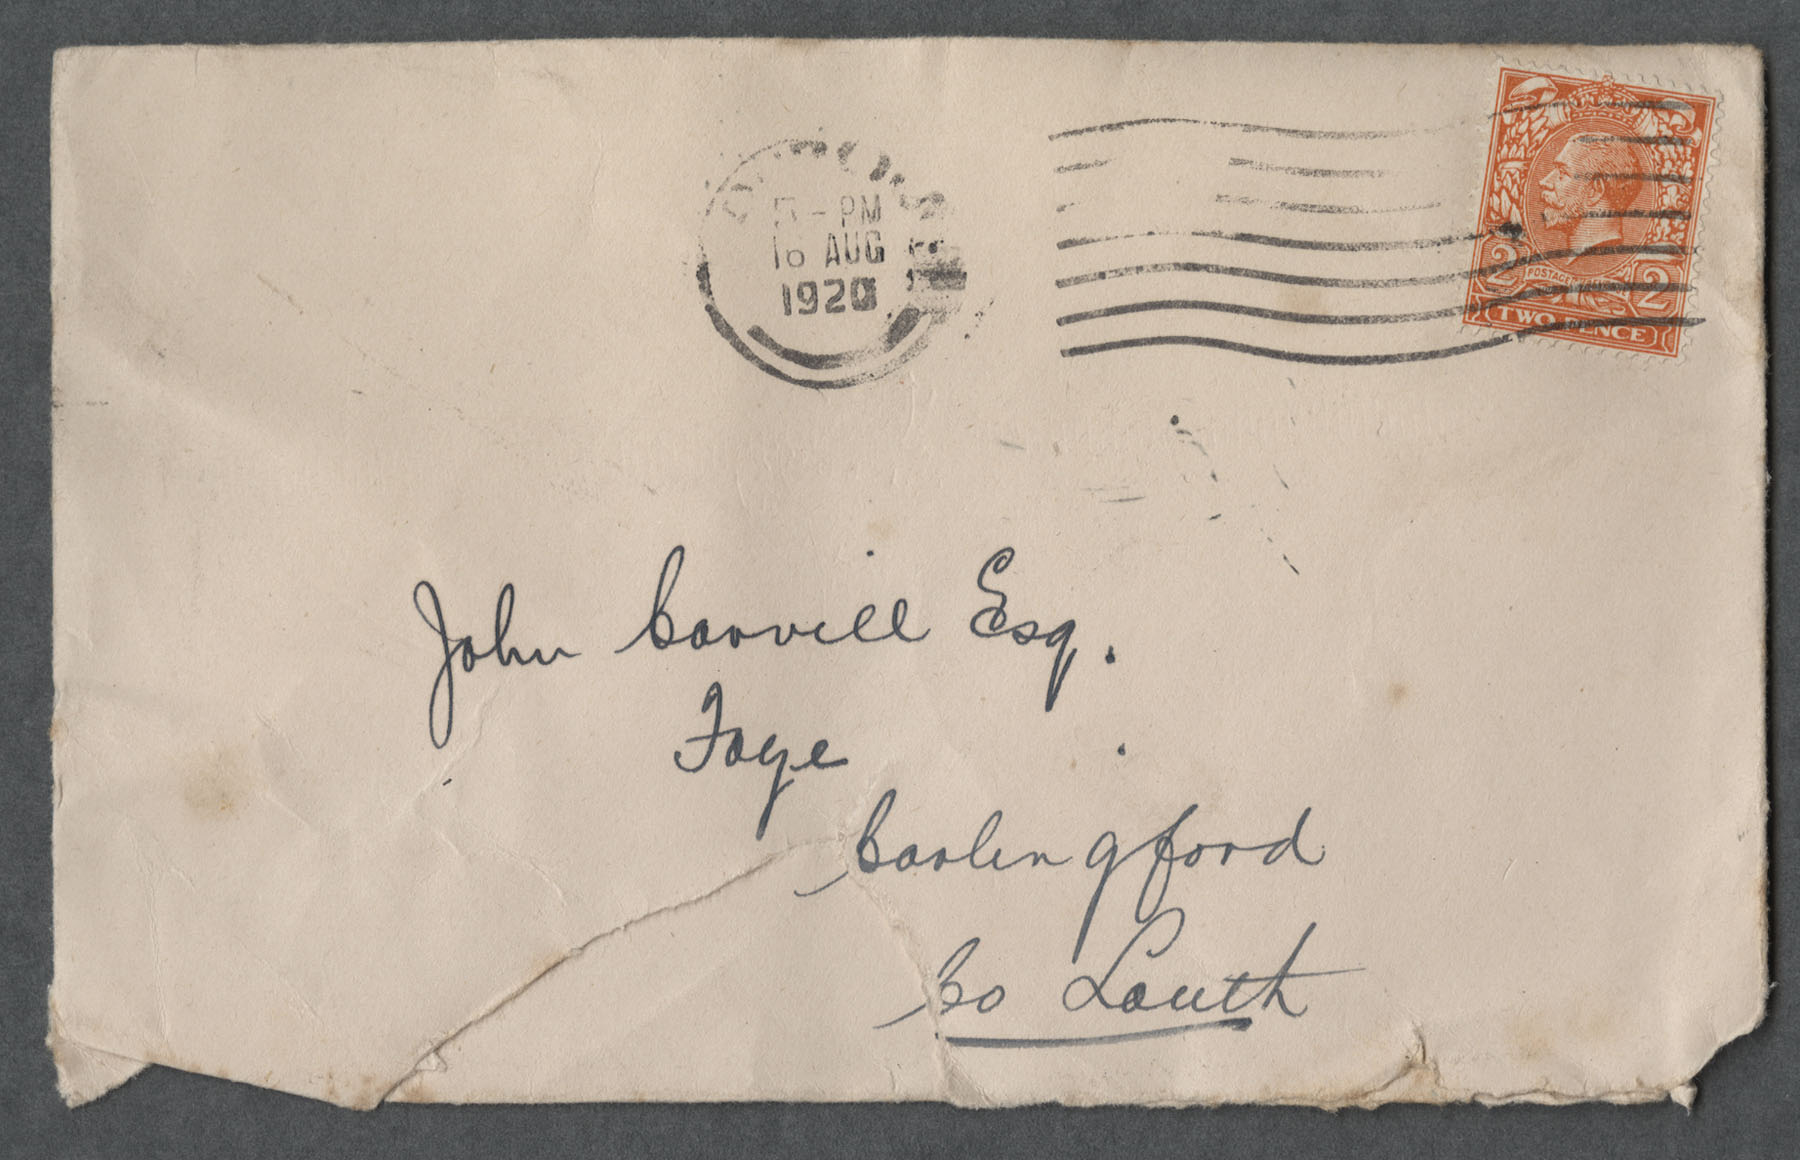 - PM
AUG
1920
2 POSTAGE 2
TWO PENCE
John Carvill Esq.
Faye
Carlingford
Co Louth